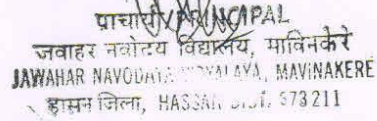 प्राचार्य/PRINCIPAL
जवाहर नवोदय विद्यालय, माविनकेरे
JAWAHAR NAVODAYA VIDYALAYA, MAVINAKERE
हासन जिला, HASSAN DIST, 573211